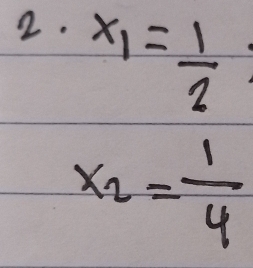 2. x₁ = 1/2 ;
x₂ = 1/4